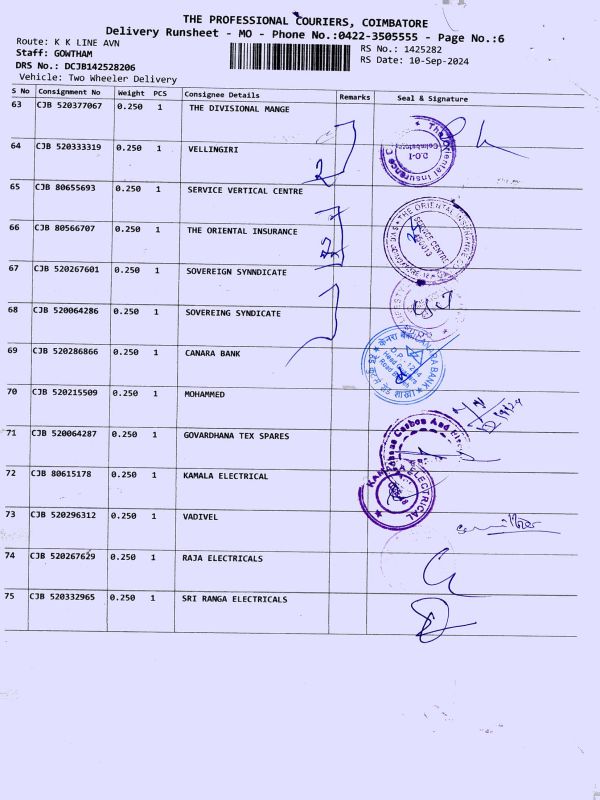 THE PROFESSIONAL COURIERS, COIMBATORE
Delivery Runsheet - MO - Phone No.:0422-3505555 - Page No.:6
Route: K K LINE AVN
Staff: GOWTHAM
DRS No.: DCJB142528206
Vehicle: Two Wheeler Delivery
RS No.: 1425282
RS Date: 10-Sep-2024
S No Consignment No Weight PCS Consignee Details Remarks Seal & Signature
63 CJB 520377067 0.250 1 THE DIVISIONAL MANGE
64 CJB 520333319 0.250 1 VELLINGIRI
65 CJB 80655693 0.250 1 SERVICE VERTICAL CENTRE
66 CJB 80566707 0.250 1 THE ORIENTAL INSURANCE
67 CJB 520267601 0.250 1 SOVEREIGN SYNNDICATE
68 CJB 520064286 0.250 1 SOVEREING SYNDICATE
69 CJB 520286866 0.250 1 CANARA BANK
70 CJB 520215509 0.250 1 MOHAMMED
71 CJB 520064287 0.250 1 GOVARDHANA TEX SPARES
72 CJB 80615178 0.250 1 KAMALA ELECTRICAL
73 CJB 520296312 0.250 1 VADIVEL
74 CJB 520267629 0.250 1 RAJA ELECTRICALS
75 CJB 520332965 0.250 1 SRI RANGA ELECTRICALS
The Oriental Insurance
D.O-I
Coimbatore
THE ORIENTAL INSURANCE
SERVICE CENTRE
केनरा बैंक CANARA BANK
शाखा
Carbon And
ELECTRICAL